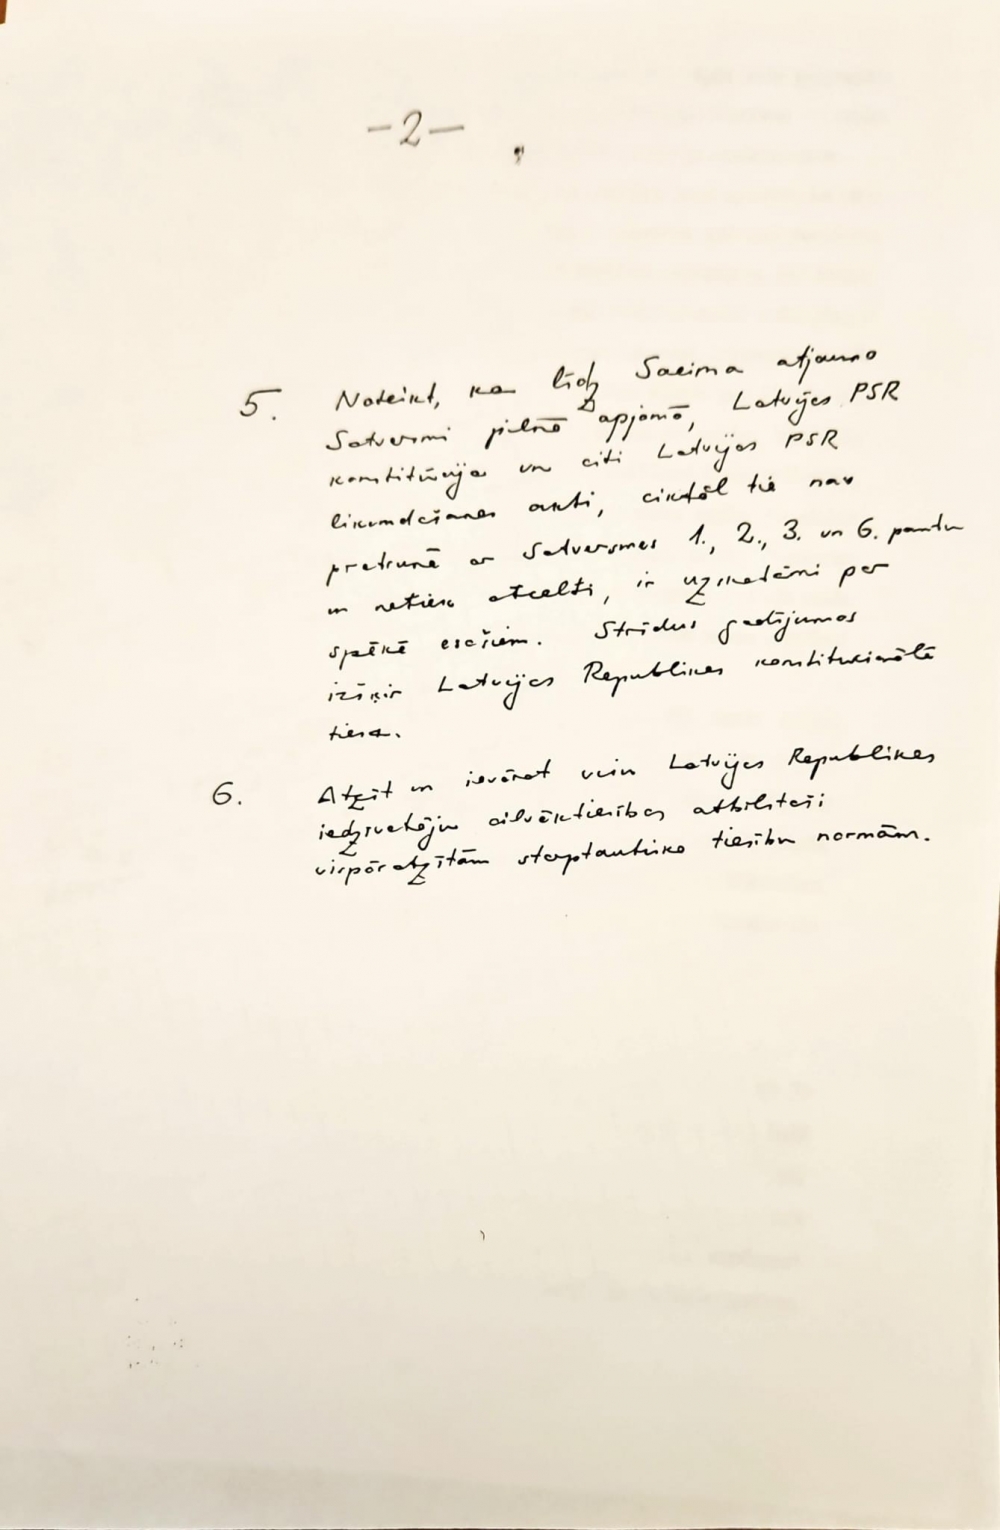 -2-
5. Noteikt, ka līdz Saeima atjauno
Satversmi pilnā apjomā, Latvijas PSR
konstitūcija un citi Latvijas PSR
likumdošanas akti, ciktāl tie nav
pretrunā ar Satversmes 1., 2., 3. un 6. pantu
un netiek atcelti, ir uzskatāmi par
spēkā esošiem. Strīdus gadījumos
izšķir Latvijas Republikas konstitucionālā
tiesa.
6. Atzīt un ievērot visu Latvijas Republikas
iedzīvotāju cilvēktiesības atbilstoši
vispāratzītām starptautisko tiesību normām.